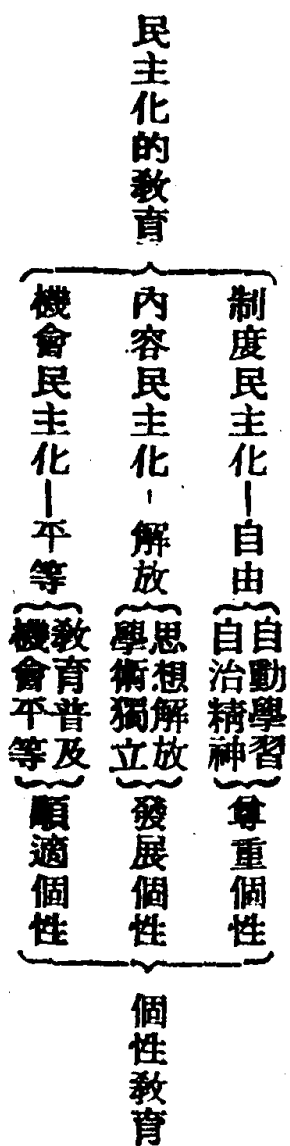 民主化的教育
制度民主化—自由
自動學習
自治精神
尊重個性
內容民主化-解放
思想解放
學術獨立
發展個性
機會民主化—平等
教育普及
機會平等
順適個性
個性教育